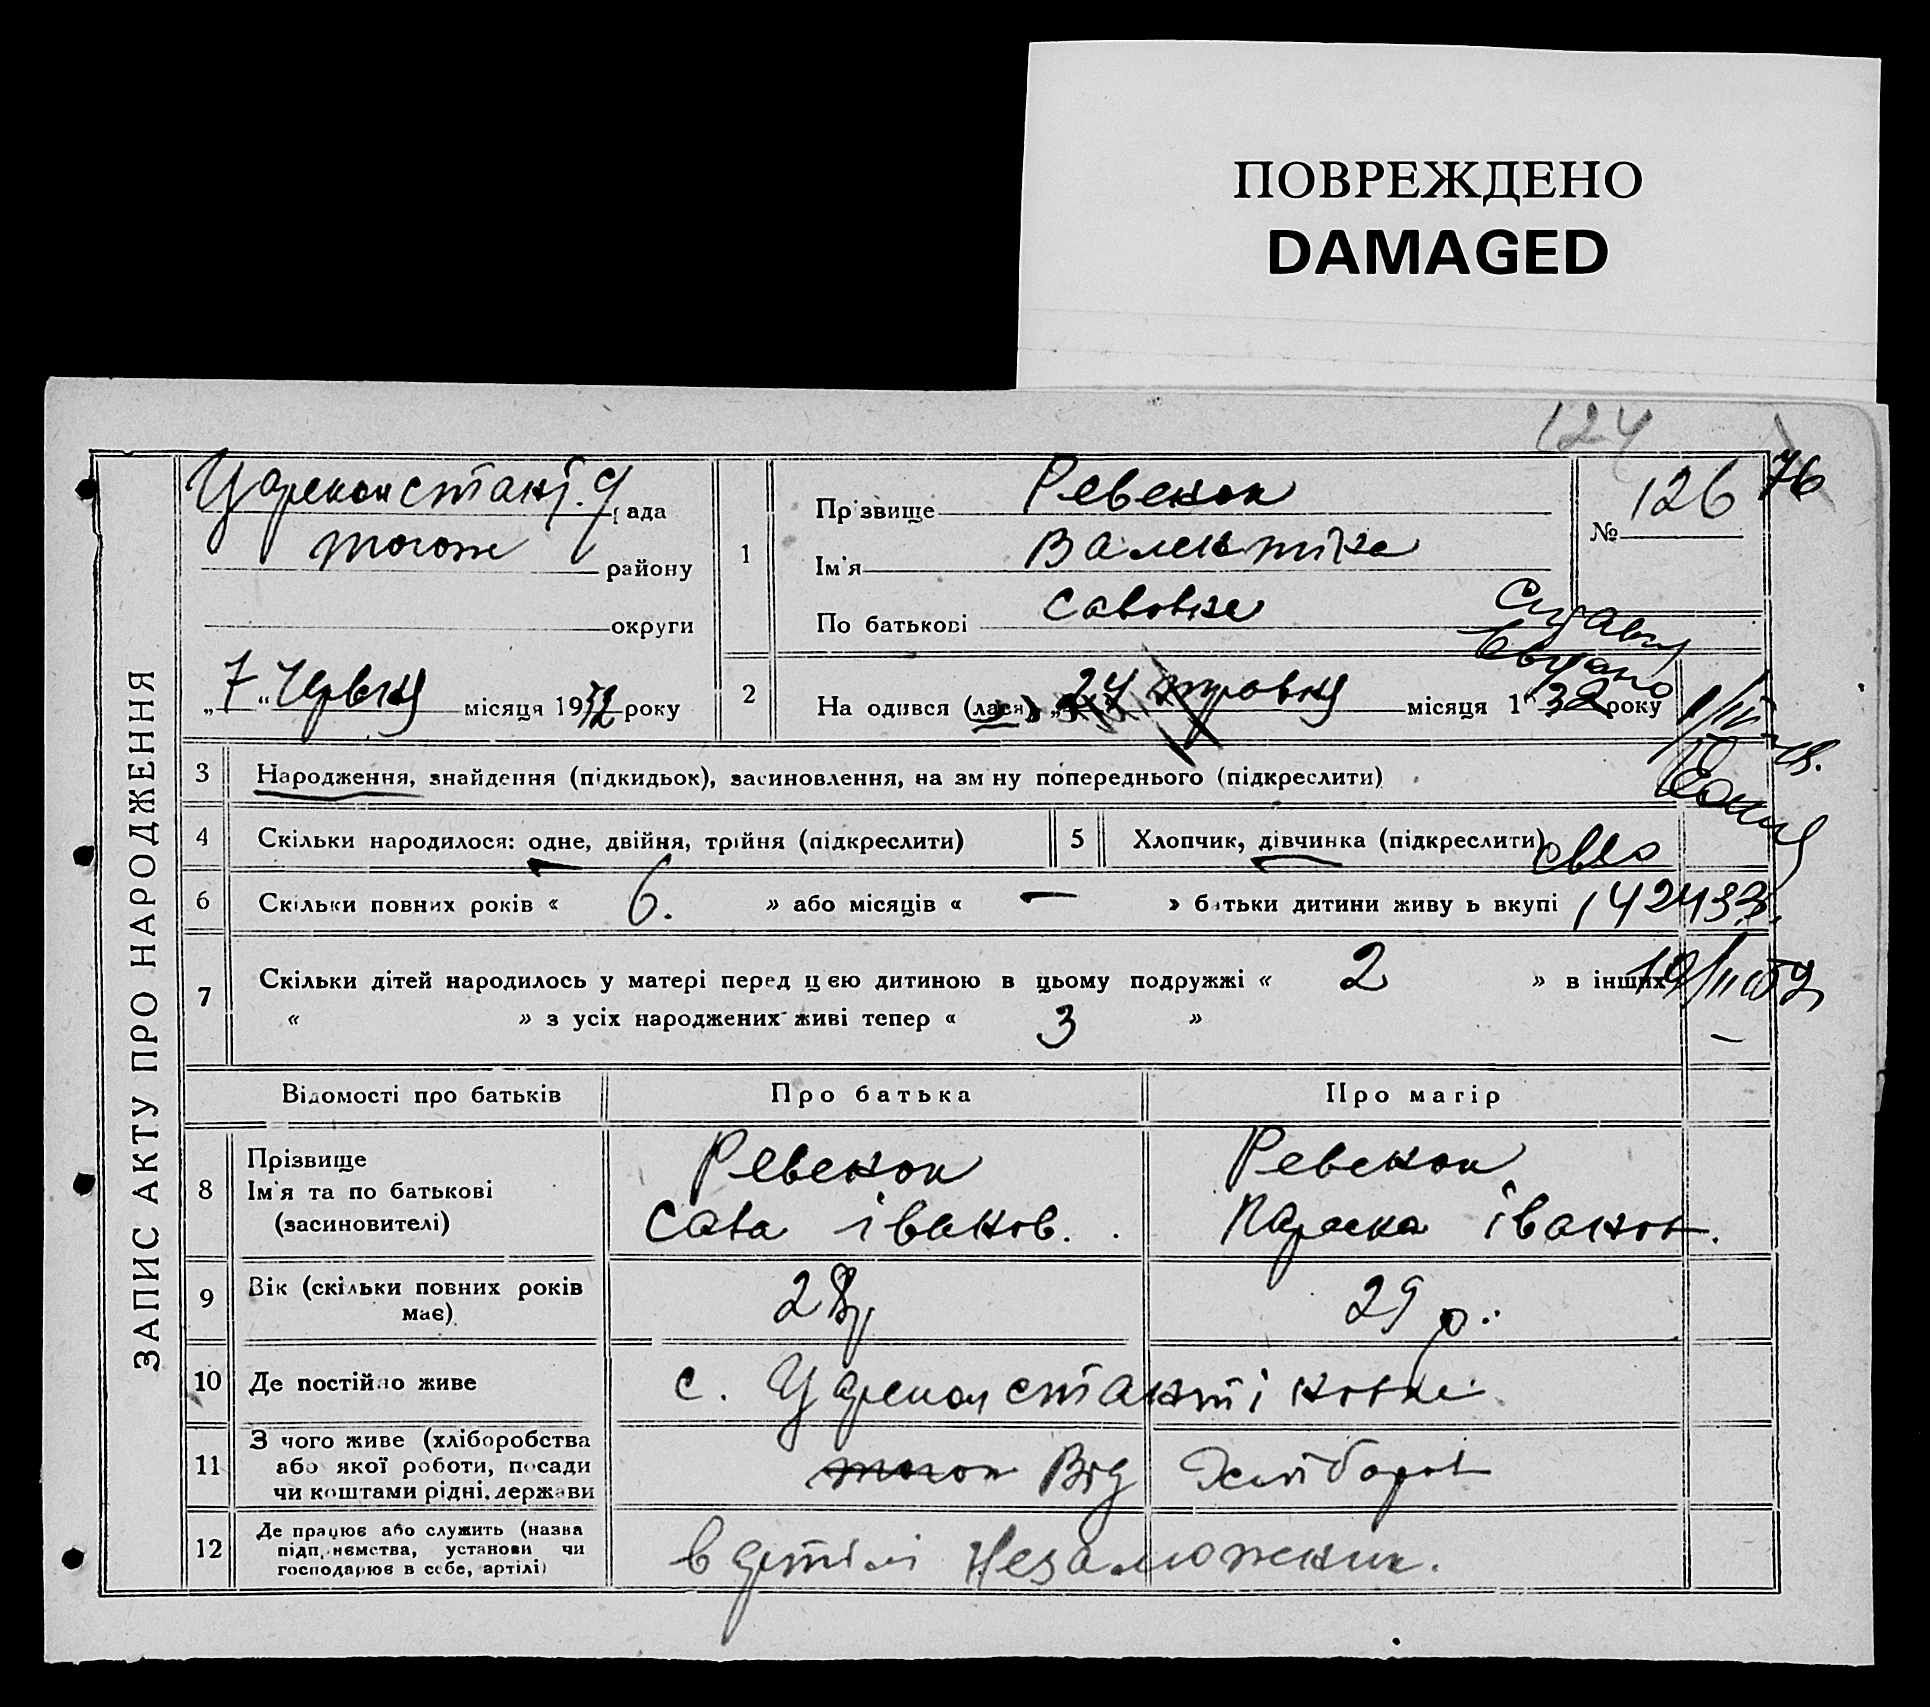 ПОВРЕЖДЕНО
DAMAGED
124
ЗАПИС АКТУ ПРО НАРОДЖЕННЯ
Цареконстант. рада
тогож району
округи
„7“ Червня місяця 1932 року
1
Прізвище Ревенок
Ім'я Валентина
По батькові Савовна
№ 126
76
2 На одився (лася) 24 травня місяця 1932 року
3 Народження, знайдення (підкидьок), засиновлення, на зм ну попереднього (підкреслити)
4 Скільки народилося: одне, двійня, трійня (підкреслити)
5 Хлопчик, дівчинка (підкреслити)
6 Скільки повних років « 6. » або місяців « — » батьки дитини живу ь вкупі
142433
7 Скільки дітей народилось у матері перед цією дитиною в цьому подружжі « 2 » в інших
« » з усіх народжених живі тепер « 3 »
Відомості про батьків
Про батька
Про матір
8 Прізвище
Ім'я та по батькові
(засиновителі)
Ревенок
Сава іванов.
Ревенок
Параска іванов.
9 Вік (скільки повних років
має)
28 р
29 р.
10 Де постійно живе
с. Цареконстантіновка
11 З чого живе (хліборобства
або якої роботи, посади
чи коштами рідні, держави
тогож Від
12 Де працює або служить (назва
підп.иємства, установи чи
господарює в себе, артілі)
в артілі Незаможник.